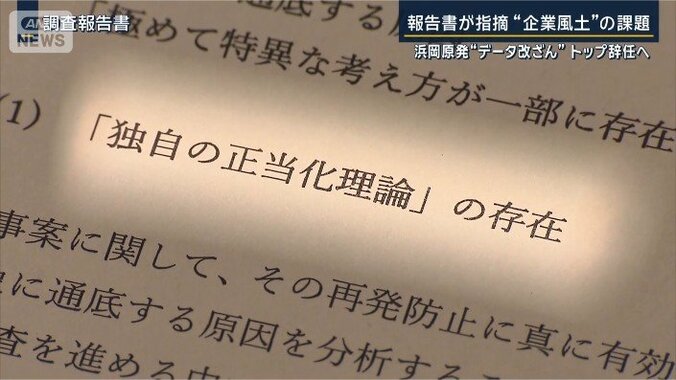 ANN
NEWS
調査報告書
報告書が指摘 “企業風土”の課題
浜岡原発“データ改ざん” トップ辞任へ
通底する
「極めて特異な考え方が一部に存在
(1)
「独自の正当化理論」の存在
事案に関して、その再発防止に真に有効
に通底する原因を分析する
査を進める中